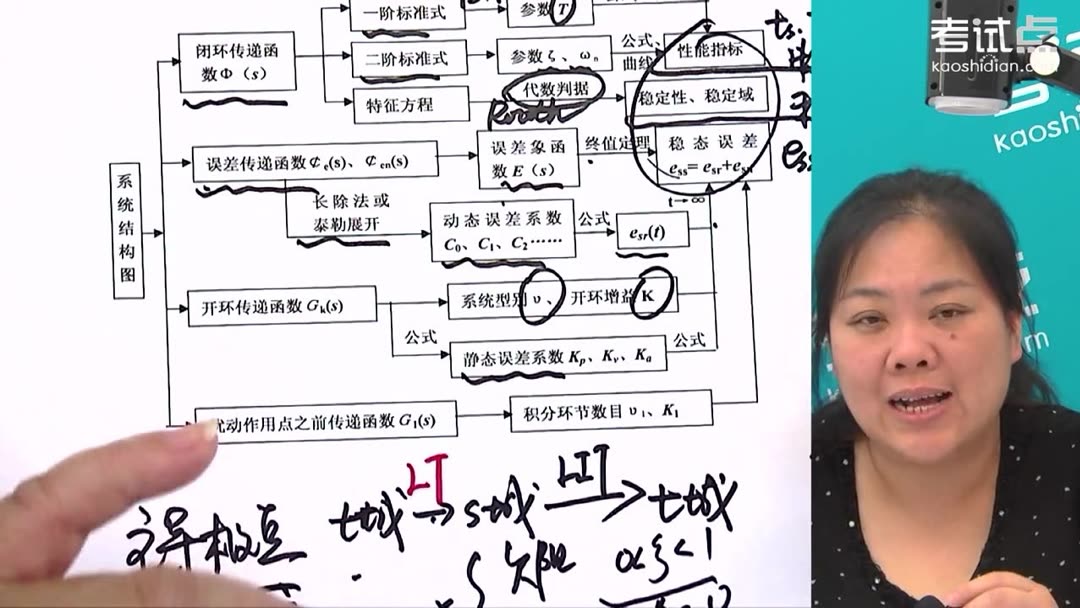 一阶标准式
参数 T
闭环传递函
数Φ（s）
二阶标准式
参数 ζ、ωn
公式、
曲线
性能指标
特征方程
代数判据
Routh
稳定性、稳定域
误差传递函数¢e(s)、¢en(s)
误 差 象 函
数 E（s）
终值定理
稳 态 误 差
ess= esr+esn
t→∞
系统结构图
长 除 法 或
泰勒展开
动 态 误 差 系 数
C0、C1、C2……
公式
esr(t)
开环传递函数 Gk(s)
系统型别 υ 、 开环增益 K
公式
静态误差系数 Kp、Kv、Ka
公式
扰动作用点之前传递函数 G1(s)
积分环节数目 υ1、K1
t域
LT
s域
LIT
t域
主导极点
0<ζ<1
ts.
ess
考试点
kaoshidian.com
kaoshi